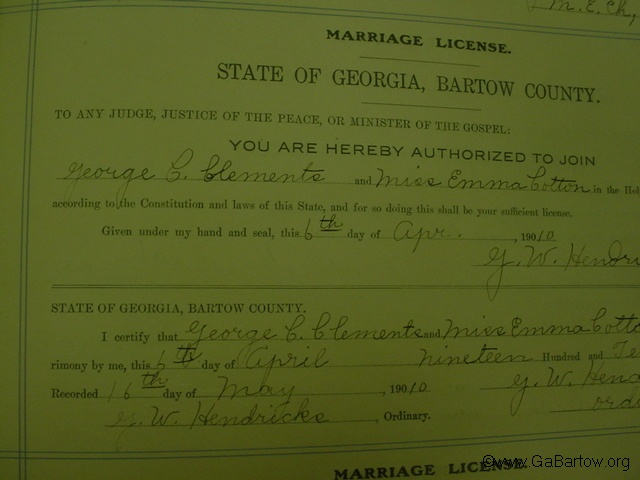 M. E. Ch,
MARRIAGE LICENSE.
STATE OF GEORGIA, BARTOW COUNTY.
TO ANY JUDGE, JUSTICE OF THE PEACE, OR MINISTER OF THE GOSPEL:
YOU ARE HEREBY AUTHORIZED TO JOIN
George C. Clements and Miss Emma Cotton in the Hol
according to the Constitution and laws of this State, and for so doing this shall be your sufficient license.
Given under my hand and seal, this 6th day of Apr. , 1910
G. W. Hendri
STATE OF GEORGIA, BARTOW COUNTY.
I certify that George C. Clements and Miss Emma Cotto
rimony by me, this 6th day of April nineteen Hundred and Te
Recorded 16th day of May , 1910 G. W. Hend
G. W. Hendricks , Ordinary. ordi
MARRIAGE LICENSE.
©www.GaBartow.org